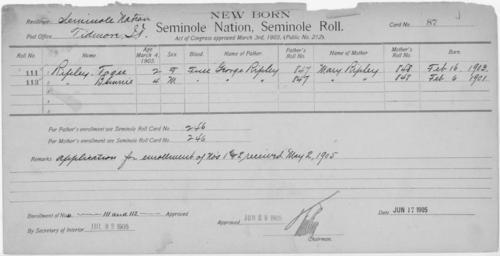 NEW BORN
Residence Seminole Nation
Seminole Nation, Seminole Roll.
Card No. 87
Post Office Tidmore, I.T.
Act of Congress approved March 3rd, 1905. (Public No. 212).
Roll No. Age March 4, 1905. Sex. Blood. Name of Father. Father's Roll No. Name of Mother. Mother's Roll No. Born.
111 Ripley, 2 F. Full George Ripley 847 Mary Ripley 848 Feb 16, 1902.
112 " Bennie 4 M. " " " 847 " " 848 Feb 6 1901.
For Father's enrollment see Seminole Roll Card No. 246
For Mother's enrollment see Seminole Roll Card No. 246
Remarks application for enrollment of Nos 1 & 2, received May 2, 1905
Enrollment of Nos. 111 and 112 Approved
By Secretary of Interior 1905
Approved 1905
Chairman.
Date JUN 17 1905